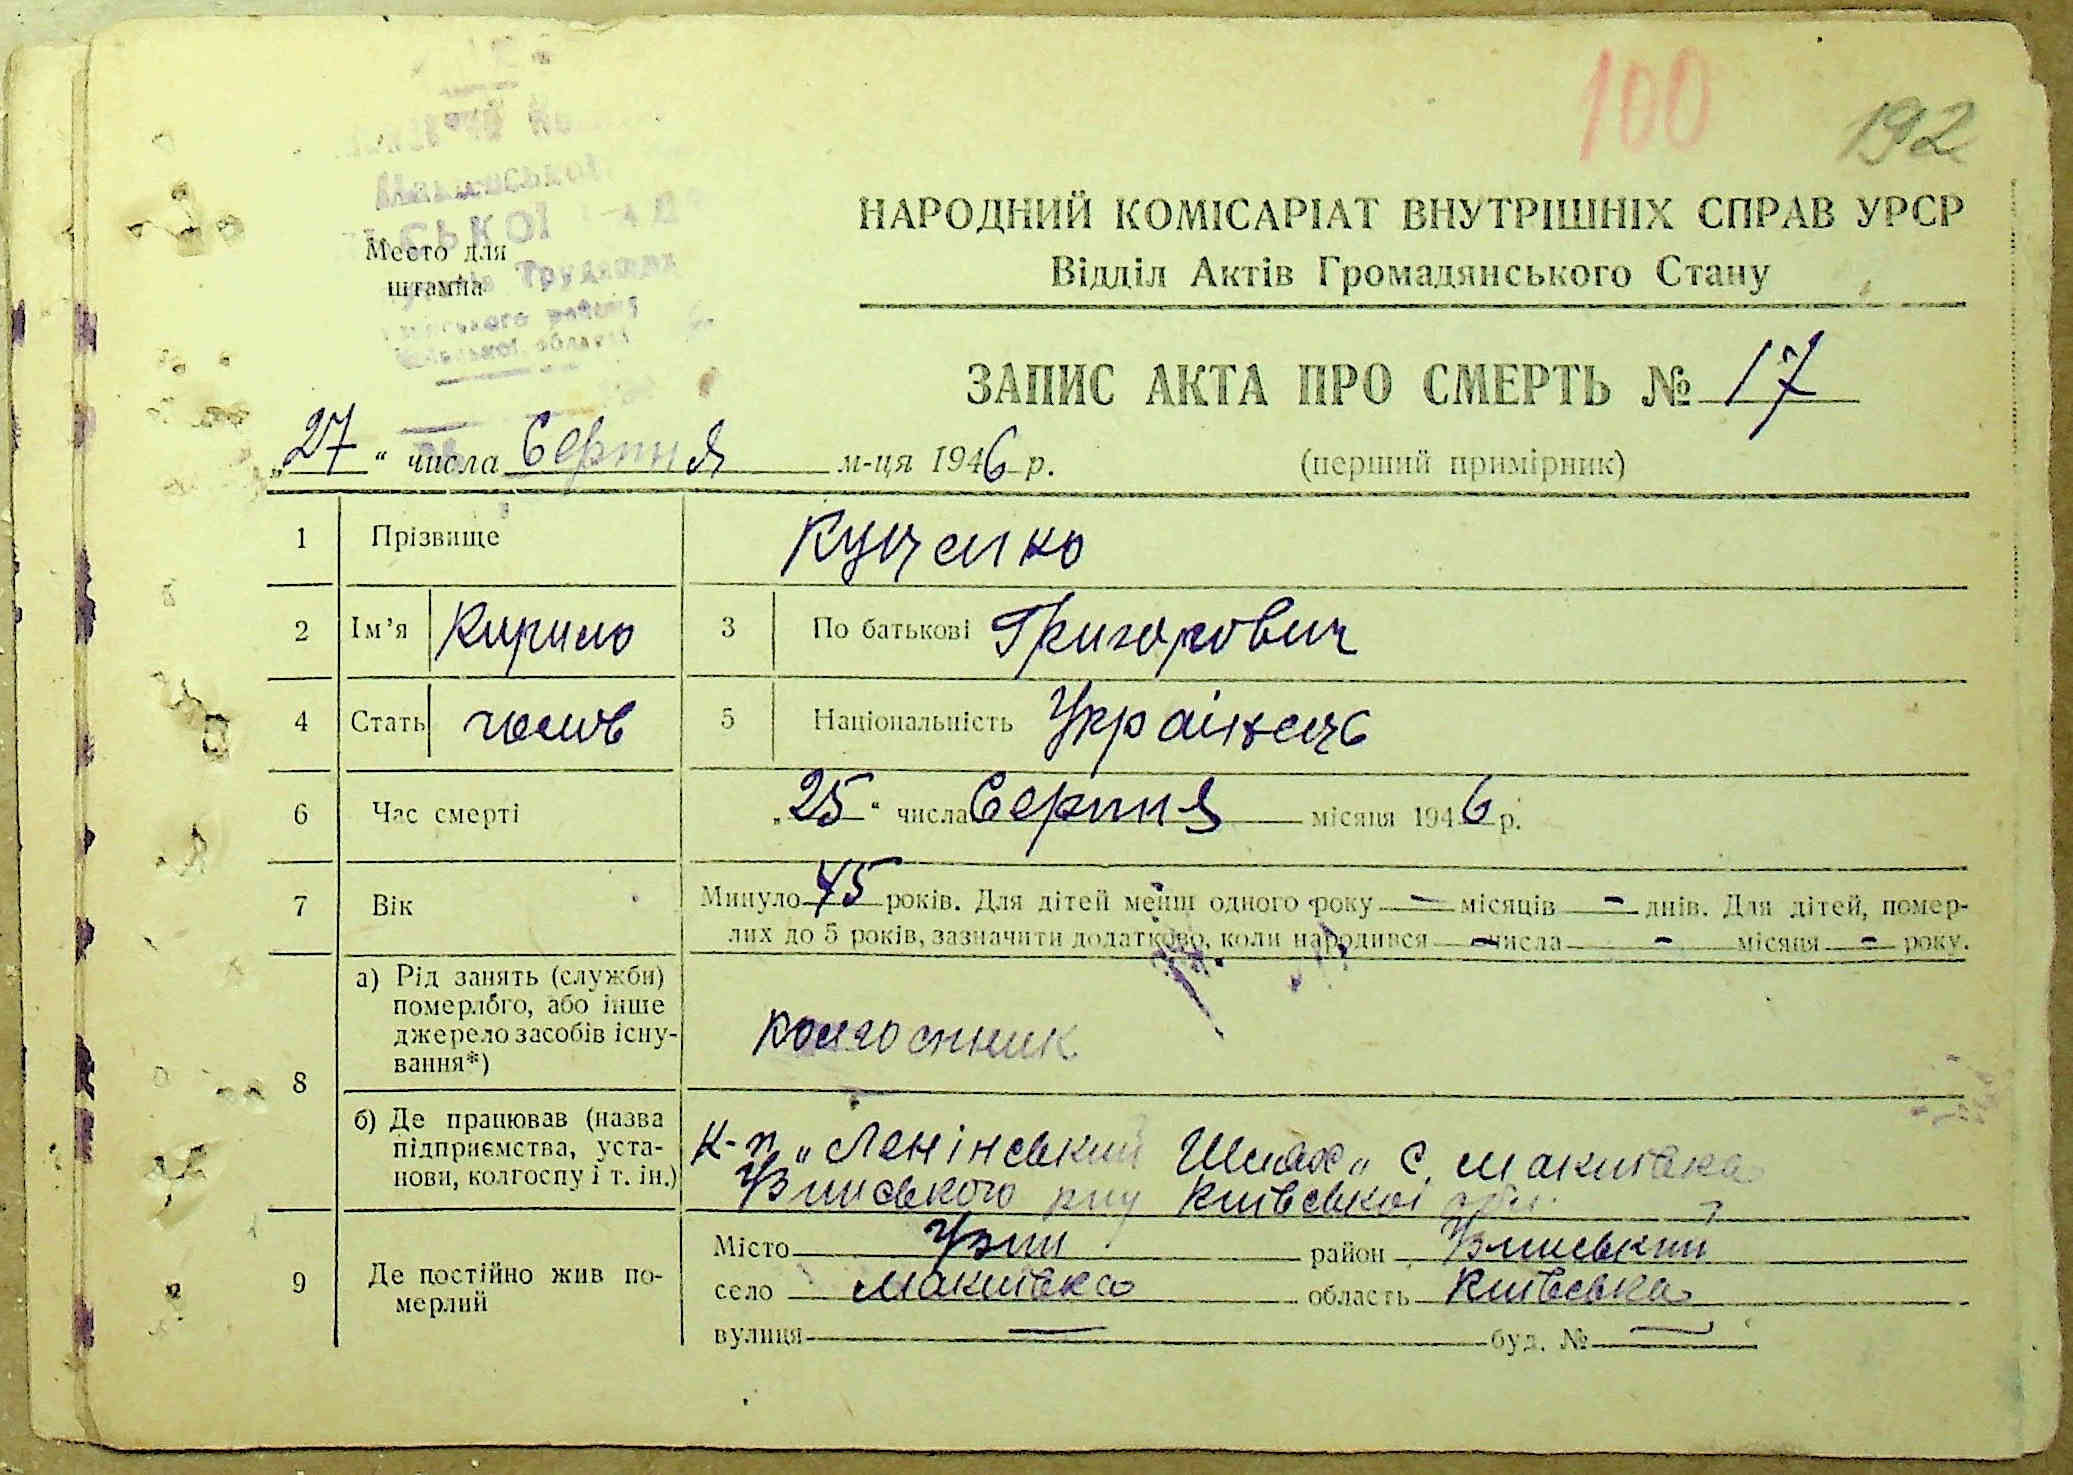 100
192
НАРОДНИЙ КОМІСАРІАТ ВНУТРІШНІХ СПРАВ УРСР
Відділ Актів Громадянського Стану
Место для
штампа
Трудящих
району
області
ЗАПИС АКТА ПРО СМЕРТЬ № 17
„27“ числа Серпня м-ця 1946 р.
(перший примірник)
1 Прізвище Куценко
2 Ім’я Кирило 3 По батькові Григорович
4 Стать чолов 5 Національність Українець
6 Час смерті „25“ числа Серпня місяця 1946 р.
7 Вік Минуло 45 років. Для дітей менш одного року — місяців — днів. Для дітей, помер-
лих до 5 років, зазначити додатково, коли народився — числа — місяця — року.
8 а) Рід занять (служби)
померлого, або інше
джерело засобів існу-
вання*)
колгоспник
б) Де працював (назва
підприємства, уста-
нови, колгоспу і т. ін.)
К-п „Ленінський Шлях„ с. Макиївка
Узинського р-ну Київської обл.
9 Де постійно жив по-
мерлий
Місто Узин район Узинський
село Макиївка область Київська
вулиця — буд. № —